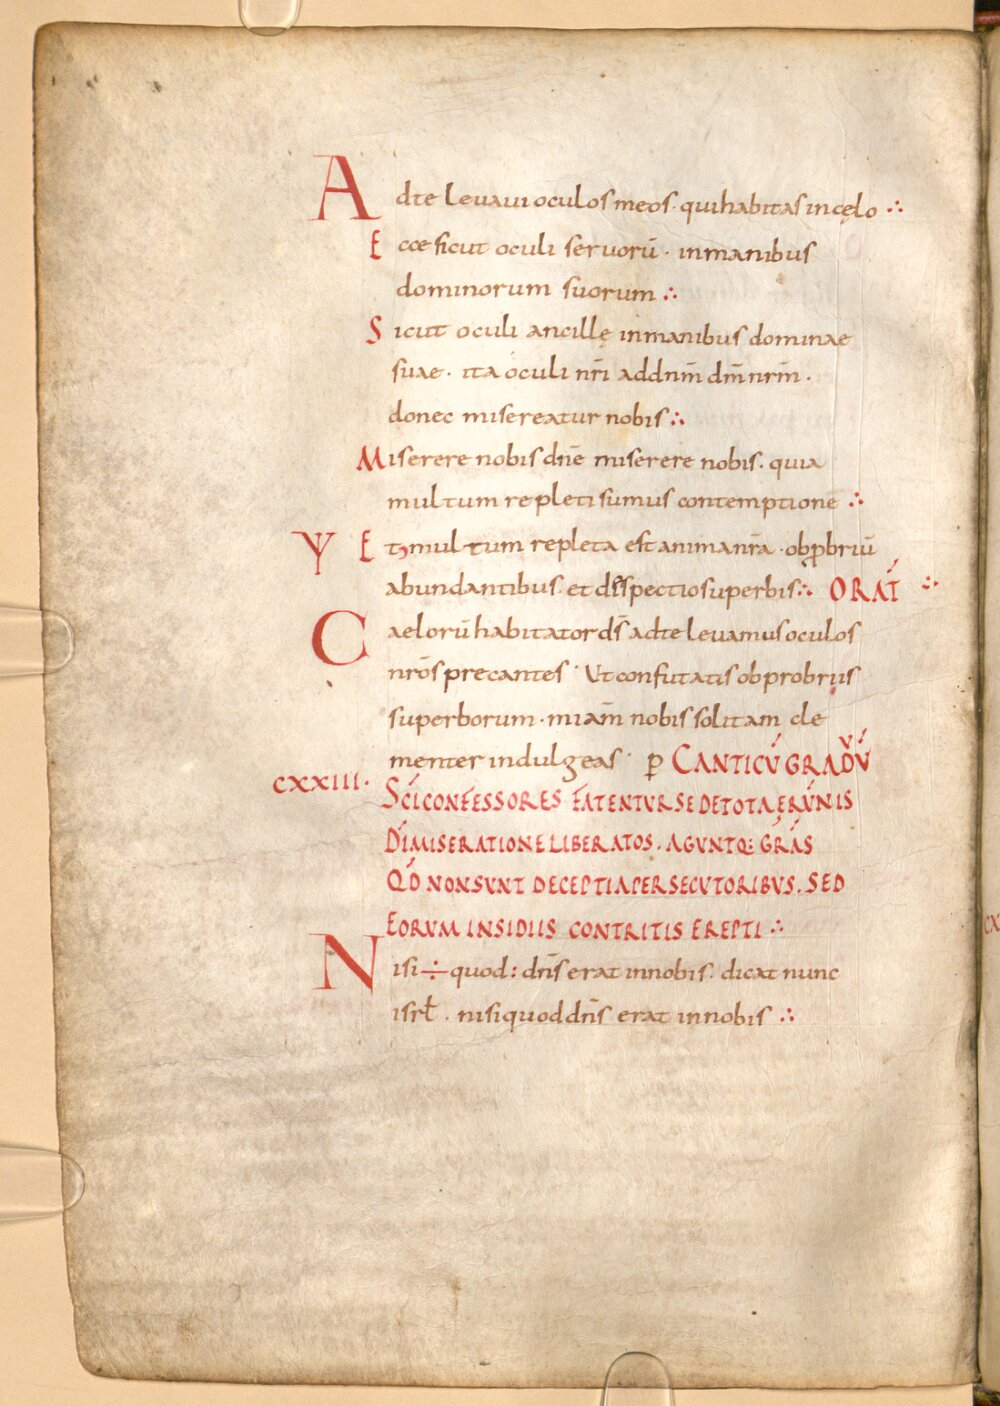 Ad te levavi oculos meos. qui habitas in cęlo ∴
Ecce sicut oculi servorū. in manibus
dominorum suorum ∴
Sicut oculi ancillę in manibus dominae
suae. ita oculi nr̄i ad dnm̄ dm̄ nrm̄.
donec misereatur nobis ∴
Miserere nobis dnē miserere nobis. quia
multum repleti sumus contemptione ∴
Y Et multum repleta est anima nr̄a. obp̄briū
abundantibus. et despectio superbis ∴ ORAT̄ ∴
Caelorū habitator ds̄ ad te levamus oculos
nrōs precantes. Ut confutatis obprobriis
superborum. miam̄ nobis solitam cle
menter indulgeas. p̄ CANTICŪ GRADŪŪ
CXXIII. SCĪ CONFESSORES FATENTUR SE DE TOTA ERŪNIS
DĪ MISERATIONE LIBERATOS. AGUNTQ: GRĀS
QD̄ NON SUNT DECEPTI A PERSECUTORIBUS. SED
EORUM INSIDIIS CONTRITIS EREPTI ∴
Nisi ÷ quod: dns̄ erat in nobis. dicat nunc
isrł. nisi quod dns̄ erat in nobis ∴
CX